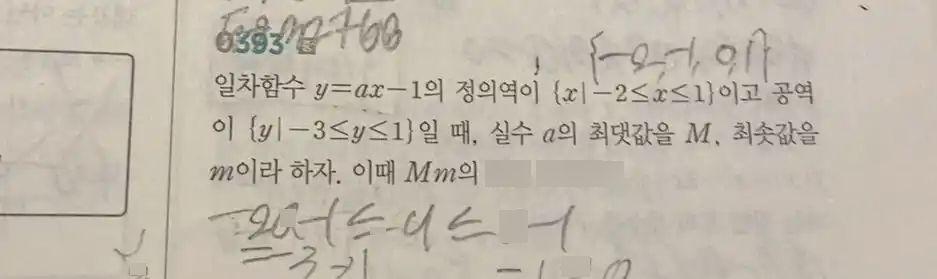 0393
{-2, -1, 0, 1}
일차함수 y=ax-1의 정의역이 {x|-2≤x≤1}이고 공역
이 {y|-3≤y≤1}일 때, 실수 a의 최댓값을 M, 최솟값을
m이라 하자. 이때 Mm의
-2a-1≤ y ≤ -1